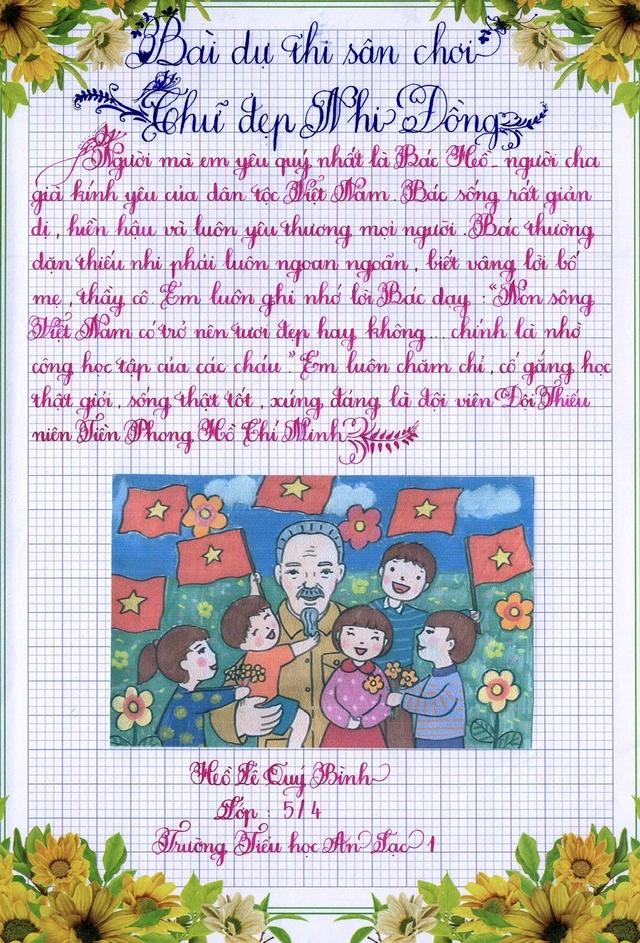 Bài dự thi sân chơi
Chữ đẹp Nhi Đồng
Người mà em yêu quý nhất là Bác Hồ - người cha
già kính yêu của dân tộc Việt Nam. Bác sống rất giản
dị, hiền hậu và luôn yêu thương mọi người. Bác thường
dặn thiếu nhi phải luôn ngoan ngoãn, biết vâng lời bố
mẹ, thầy cô. Em luôn ghi nhớ lời Bác dạy: "Non sông
Việt Nam có trở nên tươi đẹp hay không... chính là nhờ
công học tập của các cháu". Em luôn chăm chỉ, cố gắng học
thật giỏi, sống thật tốt, xứng đáng là đội viên Đội Thiếu
niên Tiền Phong Hồ Chí Minh
Hồ Lê Quý Bình
Lớp: 5/4
Trường Tiểu học An Lạc 1